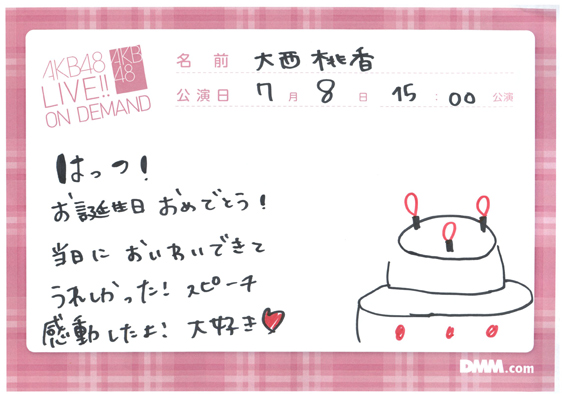 AKB48
LIVE!!
ON DEMAND
AKB
48
名前 大西桃香
公演日 7月8日 15:00公演
はっつ!
お誕生日おめでとう!
当日においわいできて
うれしかった! スピーチ
感動したよ! 大好き
DMM.com